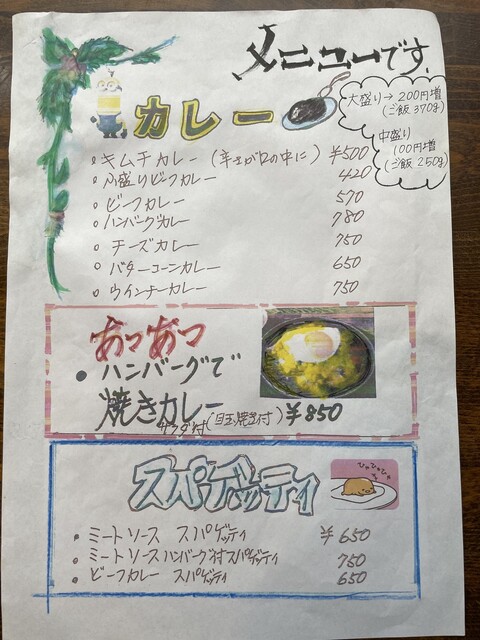 メニューです。
大盛り→200円増
(ご飯370g)
中盛り
100円増
(ご飯250g)
カレー
キムチカレー(辛さが口の中に) ¥500
小盛りビーフカレー 420
ビーフカレー 570
ハンバーグカレー 780
チーズカレー 750
バターコーンカレー 650
ウインナーカレー 750
あつあつ
ハンバーグで
焼きカレー
サラダ付(目玉焼き付) ¥850
スパゲッティ
ミートソース スパゲッティ ¥650
ミートソースハンバーグ付スパゲッティ 750
ビーフカレー スパゲッティ 650